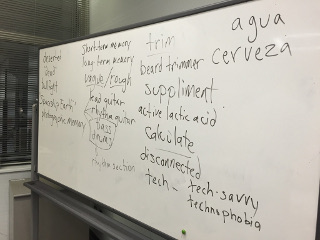 deserted
buffet
spaceship Earth
photographic memory
short-term memory
long term memory
vague / rough
lead guitar
rhythm guitar
bass
drums
rhythm section
trim
beard trimmer
suppliment
active lactic acid
calculate
disconnected
tech - tech-savvy
technophobia
agua
cerveza